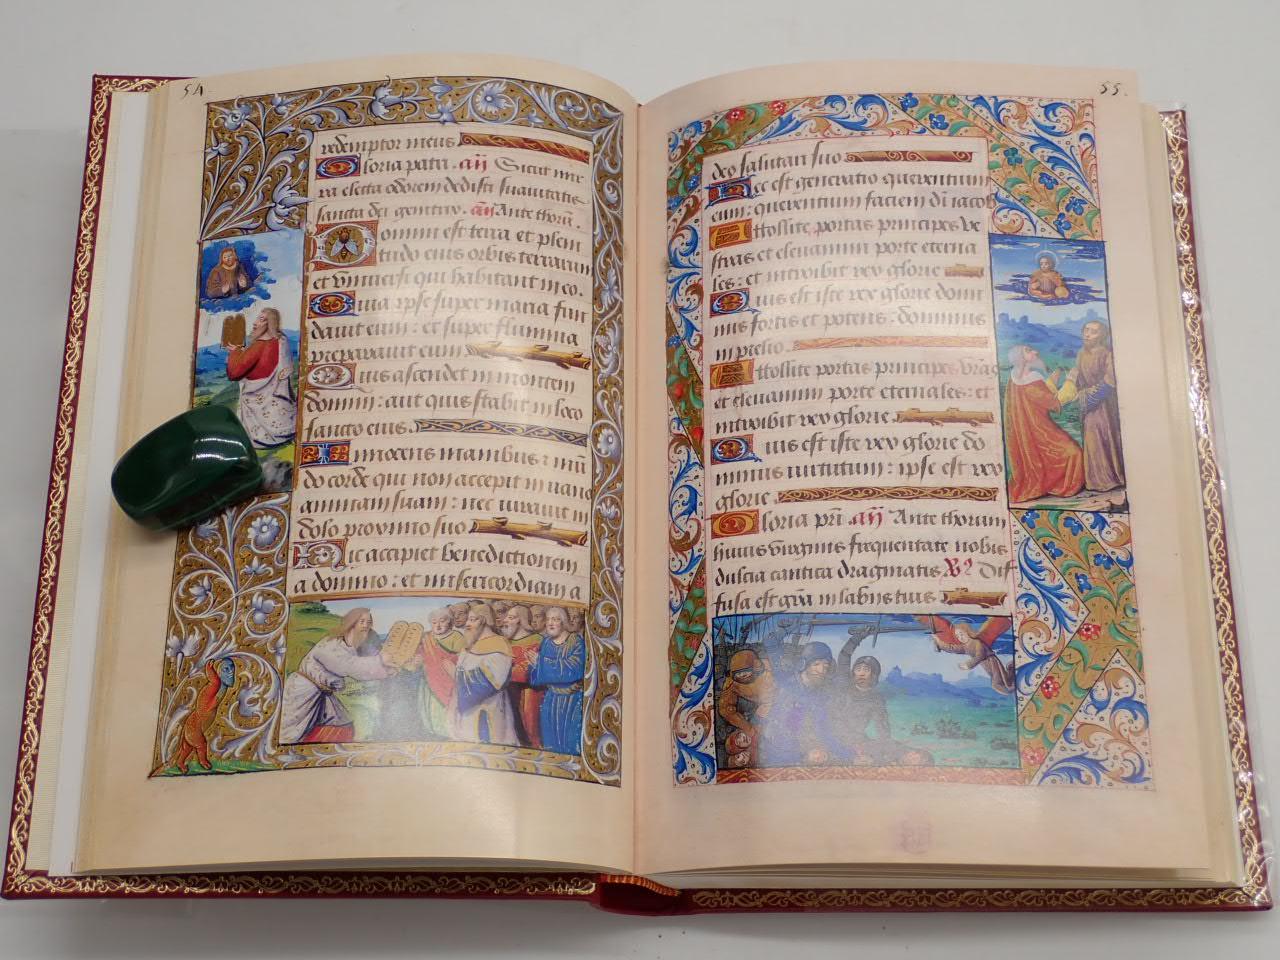 54.
redemptor meus
Gloria patri. añ Sicut mir
ra electa odorem dedisti suavitatis
sancta dei genitrix. añ Ante thorũ.
Domini est terra et pleni
tudo eius orbis terrarum
et universi qui habitant in eo.
Quia ipse super maria fun
davit eum: et super flumina
preparavit eum.
Quis ascendet in montem
domini: aut quis stabit in loco
sancto eius.
Innocens manibus: mũ
do corde qui non accepit in vano
animam suam: nec iuravit in
dolo proximo suo
Hic accipiet benedictionem
a domino: et misericordiam a
55.
deo salutari suo
Hec est generatio querentium
eum: querentium faciem dñi iacob
Attollite portas principes ve
stras et elevamini porte eterna
les: et introibit rex glorie
Quis est iste rex glorie domi
nus fortis et potens: dominus
in prelio.
Attollite portas principes vr̃as
et elevamini porte eternales: et
introibit rex glorie.
Quis est iste rex glorie do
minus virtutum: ipse est rex
glorie
Gloria pri. añ Ante thorum
huius virginis frequentate nobis
dulcia cantica dragmatis. V? Dif
fusa est grã in labijs tuis.